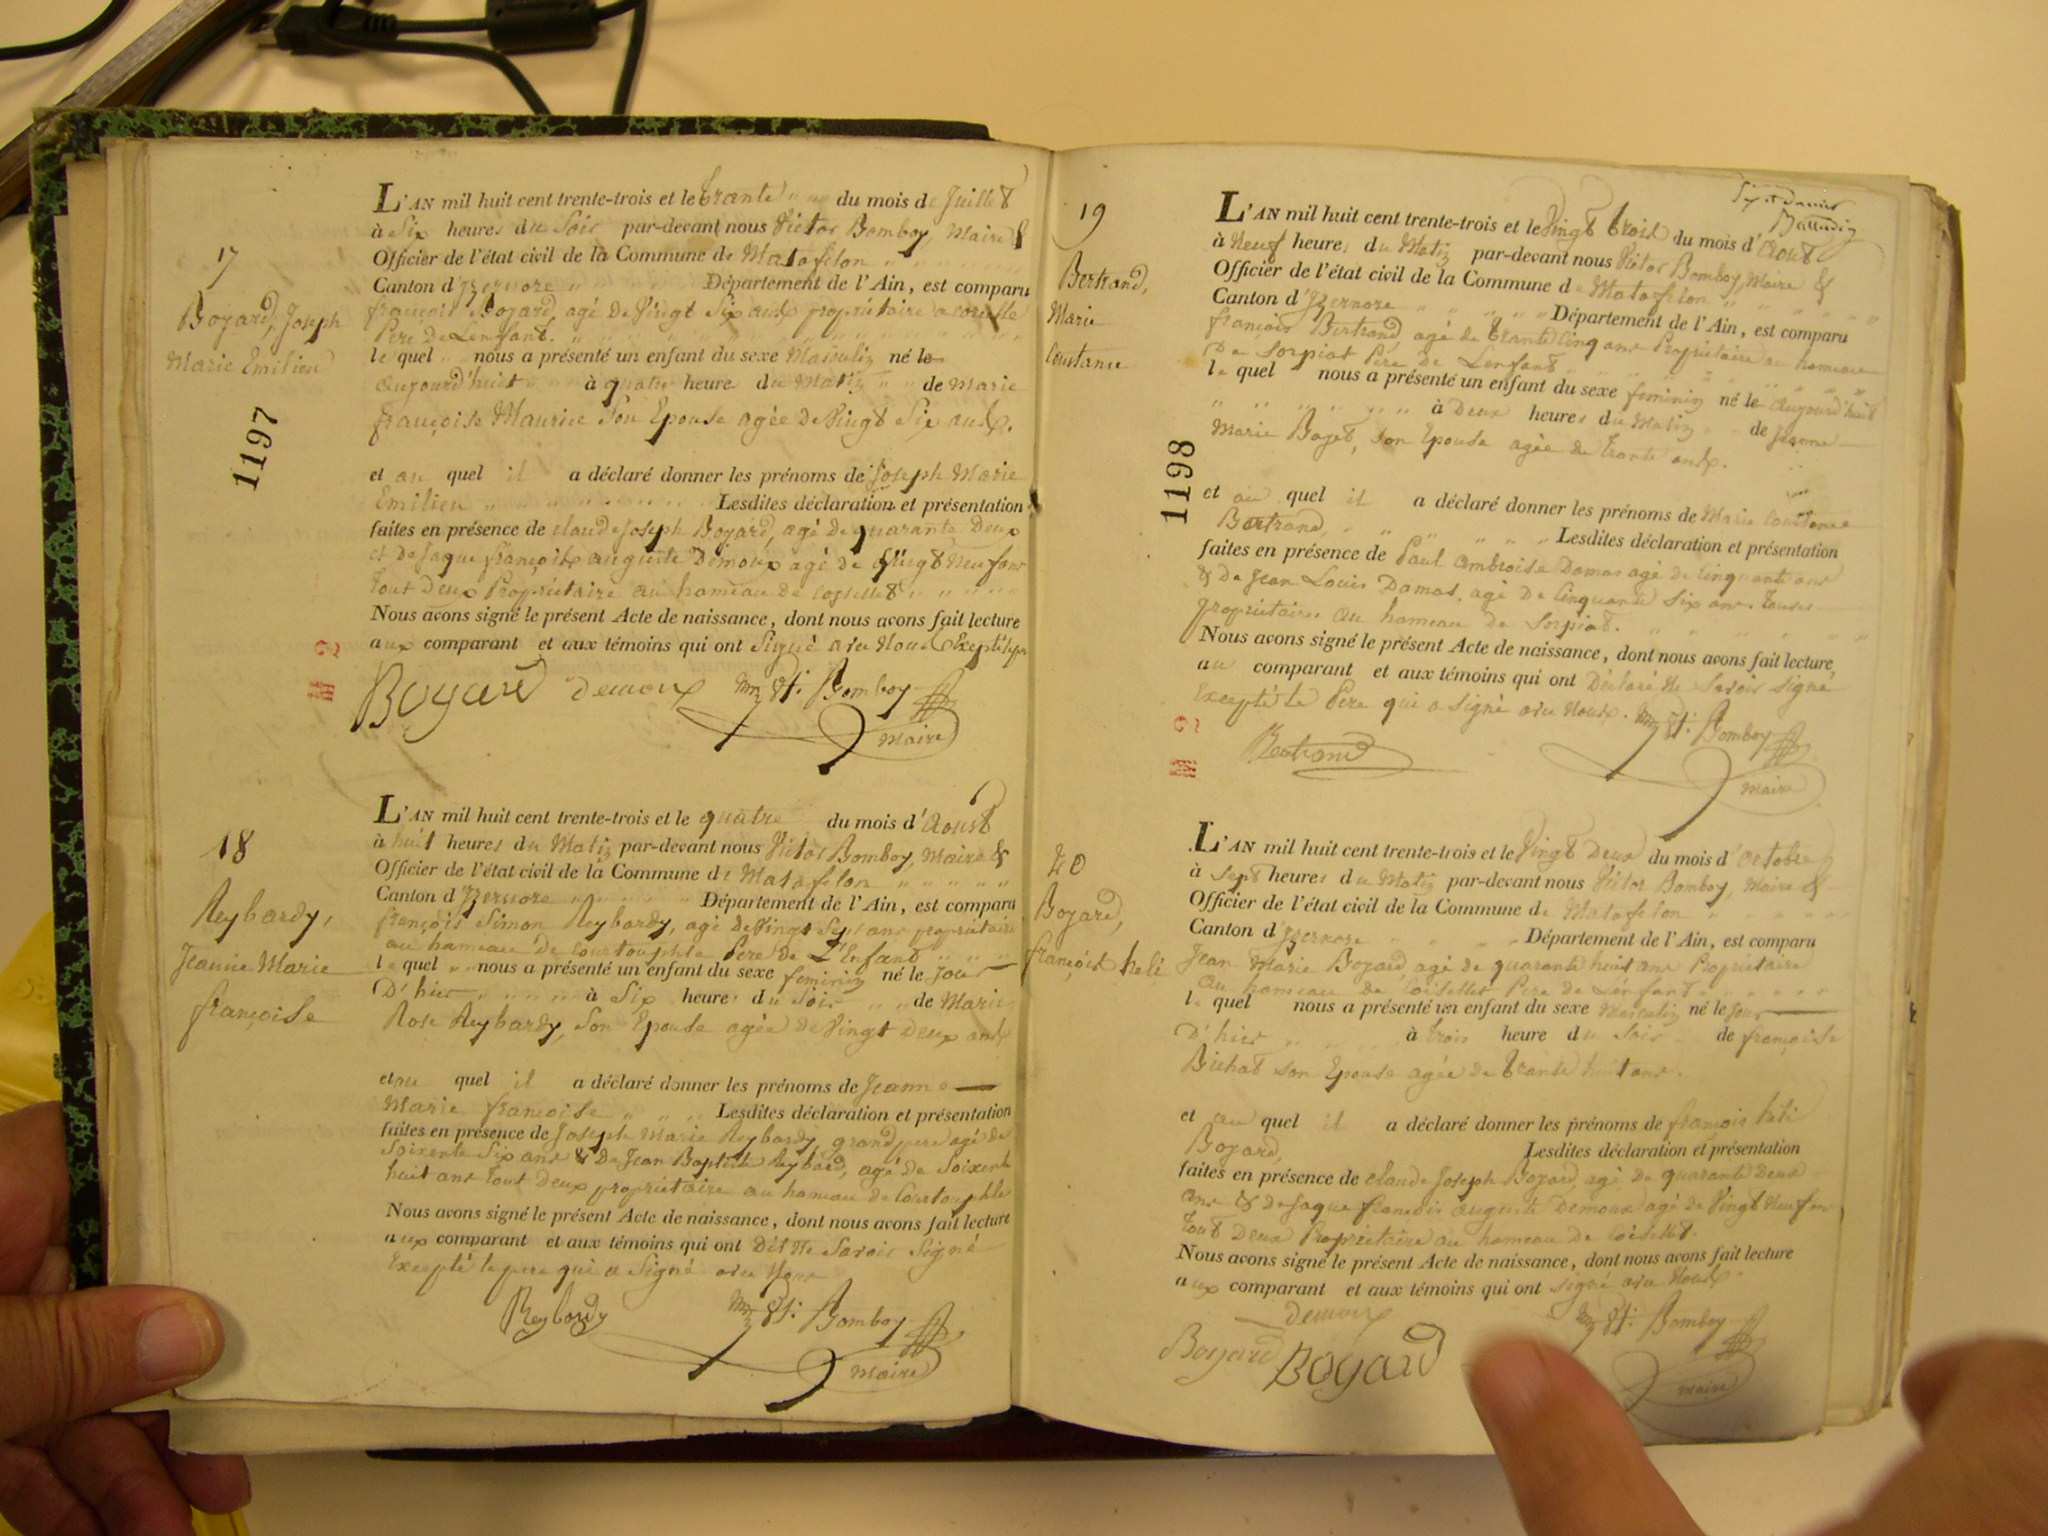 17
Boyard, Joseph
Marie Emilien
1197
L'AN mil huit cent trente-trois et le trante du mois de Juillet
à Six heures du Soir par-devant nous Victor Bomboy, Maire &
Officier de l'état civil de la Commune de Matafelon
Canton d'Izernore Département de l'Ain, est comparu
françois Boyard, agé de Vingt Six ans propriétaire a
Pere De Lenfant.
le quel nous a présenté un enfant du sexe Masculin né le
aujourd'huit à quatre heure du Matin de Marie
françoise Maurice Son Epouse agée de Vingt Six ans.
et au quel il a déclaré donner les prénoms de Joseph Marie
Emilien Lesdites déclaration et présentation
faites en présence de Claude Joseph Boyard, agé de quarante Deux
et De Jaque françois auguste Demoux agé de Vingt Neuf ans
tout Deux Propriétaire au hameau de Coisellet
Nous avons signé le présent Acte de naissance, dont nous avons fait lecture
aux comparant et aux témoins qui ont Signé avec Nous
Boyard Demoux Bomboy
Maire
18
Reybardy,
Jeanne Marie
françoise
L'AN mil huit cent trente-trois et le quatre du mois d'Aoust
à huit heures du Matin par-devant nous Victor Bomboy, Maire &
Officier de l'état civil de la Commune de Matafelon
Canton d'Izernore Département de l'Ain, est comparu
françois Simon Reybardy, agé de Vingt Sept ans propriétaire
au hameau De Courtouphle Pere de L'Enfant
le quel nous a présenté un enfant du sexe feminin né le Jour
D'hier à Six heures du Soir de Marie
Rose Reybardy, Son Epouse agée de Vingt Deux ans
et au quel il a déclaré donner les prénoms de Jeanne
Marie françoise Lesdites déclaration et présentation
faites en présence de Joseph Marie Reybardy, grand pere agé de
Soixente Six ans & De Jean Baptiste Reybard, agé de Soixente
huit ans tout Deux propriétaire au hameau de Courtouphle
Nous avons signé le présent Acte de naissance, dont nous avons fait lecture
aux comparant et aux témoins qui ont Dit Ne Savoir Signé
Excepté le pere qui a Signé avec Nous
Reybardy Bomboy
Maire
19
Bertrand,
Marie
Constance
1198
L'AN mil huit cent trente-trois et le Vingt trois du mois d'Aout
à Neuf heures du Matin par-devant nous Victor Bomboy, Maire &
Officier de l'état civil de la Commune de Matafelon
Canton d'Izernore Département de l'Ain, est comparu
françois Bertrand, agé de trante Cinq ans Propriétaire au hameau
De Sorpiat Pere De Lenfant
le quel nous a présenté un enfant du sexe feminin né le aujourd'huit
à Deux heures du Matin de Jeanne
Marie Boyet, Son Epouse agée de trante ans.
et au quel il a déclaré donner les prénoms de Marie Constance
Bertrand, Lesdites déclaration et présentation
faites en présence de Paul Ambroise Damas agé de Cinquante ans
& De Jean Louis Damas, agé de Cinquante Six ans. tous
propriétaires au hameau de Sorpiat.
Nous avons signé le présent Acte de naissance, dont nous avons fait lecture
au comparant et aux témoins qui ont Déclaré Ne Savoir signé
Excepté le Pere qui a Signé avec Nous. Bomboy
Bertrand
Maire
20
Boyard,
françois heli
L'AN mil huit cent trente-trois et le Vingt Deux du mois d'octobre
à Sept heures du Matin par-devant nous Victor Bomboy, Maire &
Officier de l'état civil de la Commune de Matafelon
Canton d'Izernore Département de l'Ain, est comparu
Jean Marie Boyard agé de quarante huit ans Propriétaire
au hameau de Coisellet Pere de Lenfant
le quel nous a présenté un enfant du sexe Masculin né le Jour
D'hier à trois heure du Soir de françoise
Bichat Son Epouse agée de trante huit ans.
et au quel il a déclaré donner les prénoms de françois heli
Boyard, Lesdites déclaration et présentation
faites en présence de Claude Joseph Boyard, agé de quarante Deux
ans & de Jaque francois auguste Demoux agé de Vingt Neuf ans
tout Deux Propriétaire au hameau de Coisellet.
Nous avons signé le présent Acte de naissance, dont nous avons fait lecture
aux comparant et aux témoins qui ont signé avec Nous
Demoux Bomboy
Boyard Boyard
Maire